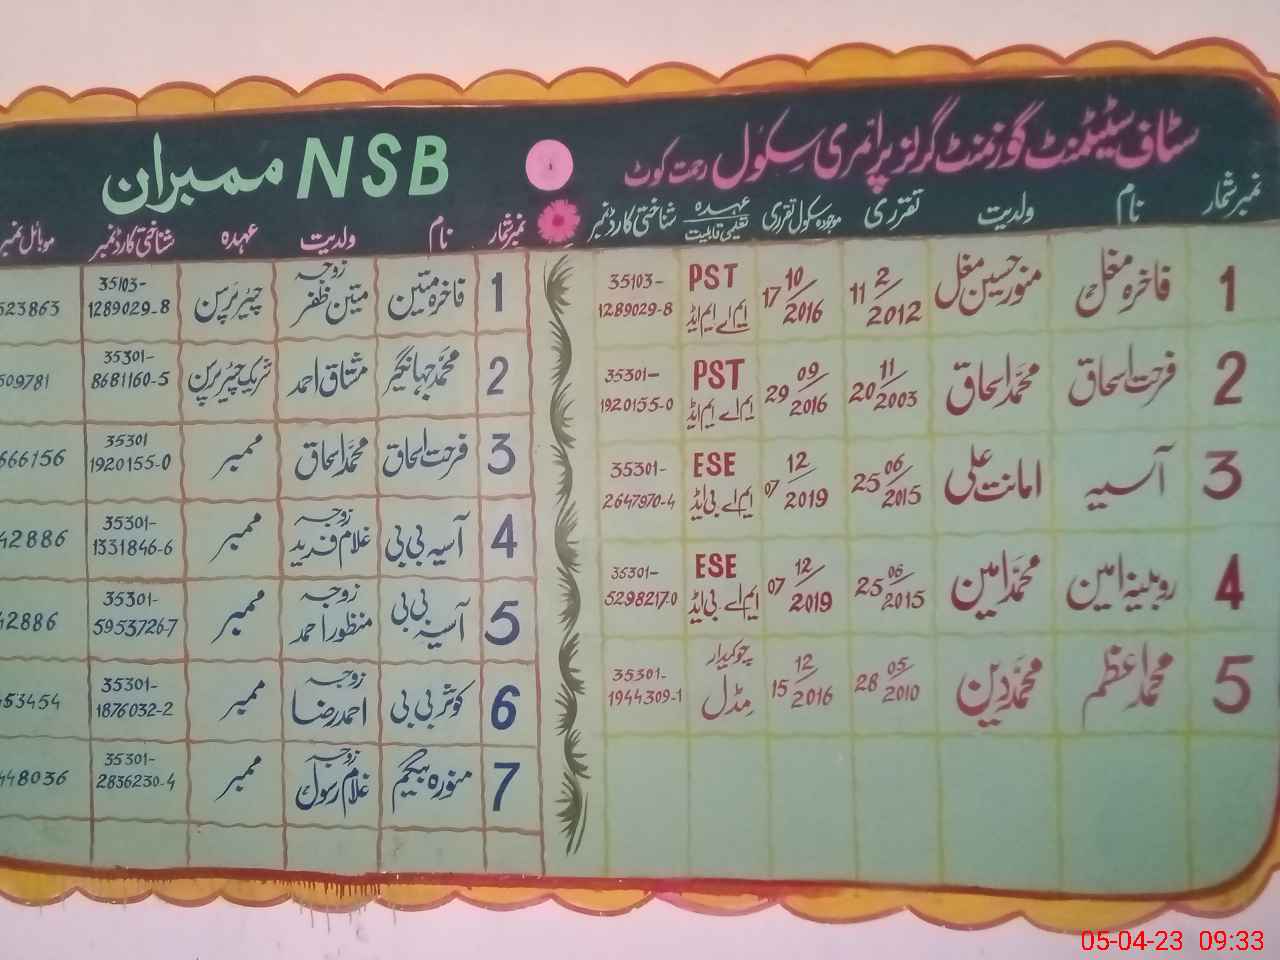 سٹاف سٹیٹمنٹ گورنمنٹ گرلز پرائمری سکول رحمت کوٹ
نمبر شمار نام ولدیت تقرری موجودہ سکول تقرری عہدہ تعلیمی قابلیت شناختی کارڈ نمبر
1 فاخرہ مغل منور حسین مغل 11/2/2012 17/10/2016 PST ایم اے ایم ایڈ 35103-1289029-8
2 فرحت اسحاق محمد اسحاق 20/11/2003 29/09/2016 PST ایم اے ایم ایڈ 35301-1920155-0
3 آسیہ امانت علی 25/06/2015 07/12/2019 ESE ایم اے بی ایڈ 35301-2647970-4
4 روبینہ امین محمد امین 25/06/2015 07/12/2019 ESE ایم اے بی ایڈ 35301-5298217-0
5 محمد اعظم محمد دین 28/05/2010 15/12/2016 چوکیدار مڈل 35301-1944309-1
NSB ممبران
نمبر شمار نام ولدیت عہدہ شناختی کارڈ نمبر موبائل نمبر
1 فاخرہ متین زوجہ متین ظفر چیئرپرسن 35103-1289029-8 523863
2 محمد جہانگیر مشتاق احمد شریک چیئرپرسن 35301-8681160-5 509781
3 فرحت اسحاق محمد اسحاق ممبر 35301 1920155-0 666156
4 آسیہ بی بی زوجہ غلام فرید ممبر 35301-1331846-6 42886
5 آسیہ بی بی زوجہ منظور احمد ممبر 35301-5953726-7 42886
6 کوثر بی بی زوجہ احمد رضا ممبر 35301-1876032-2 453454
7 منورہ بیگم زوجہ غلام رسول ممبر 35301-2836230-4 448036
05-04-23 09:33